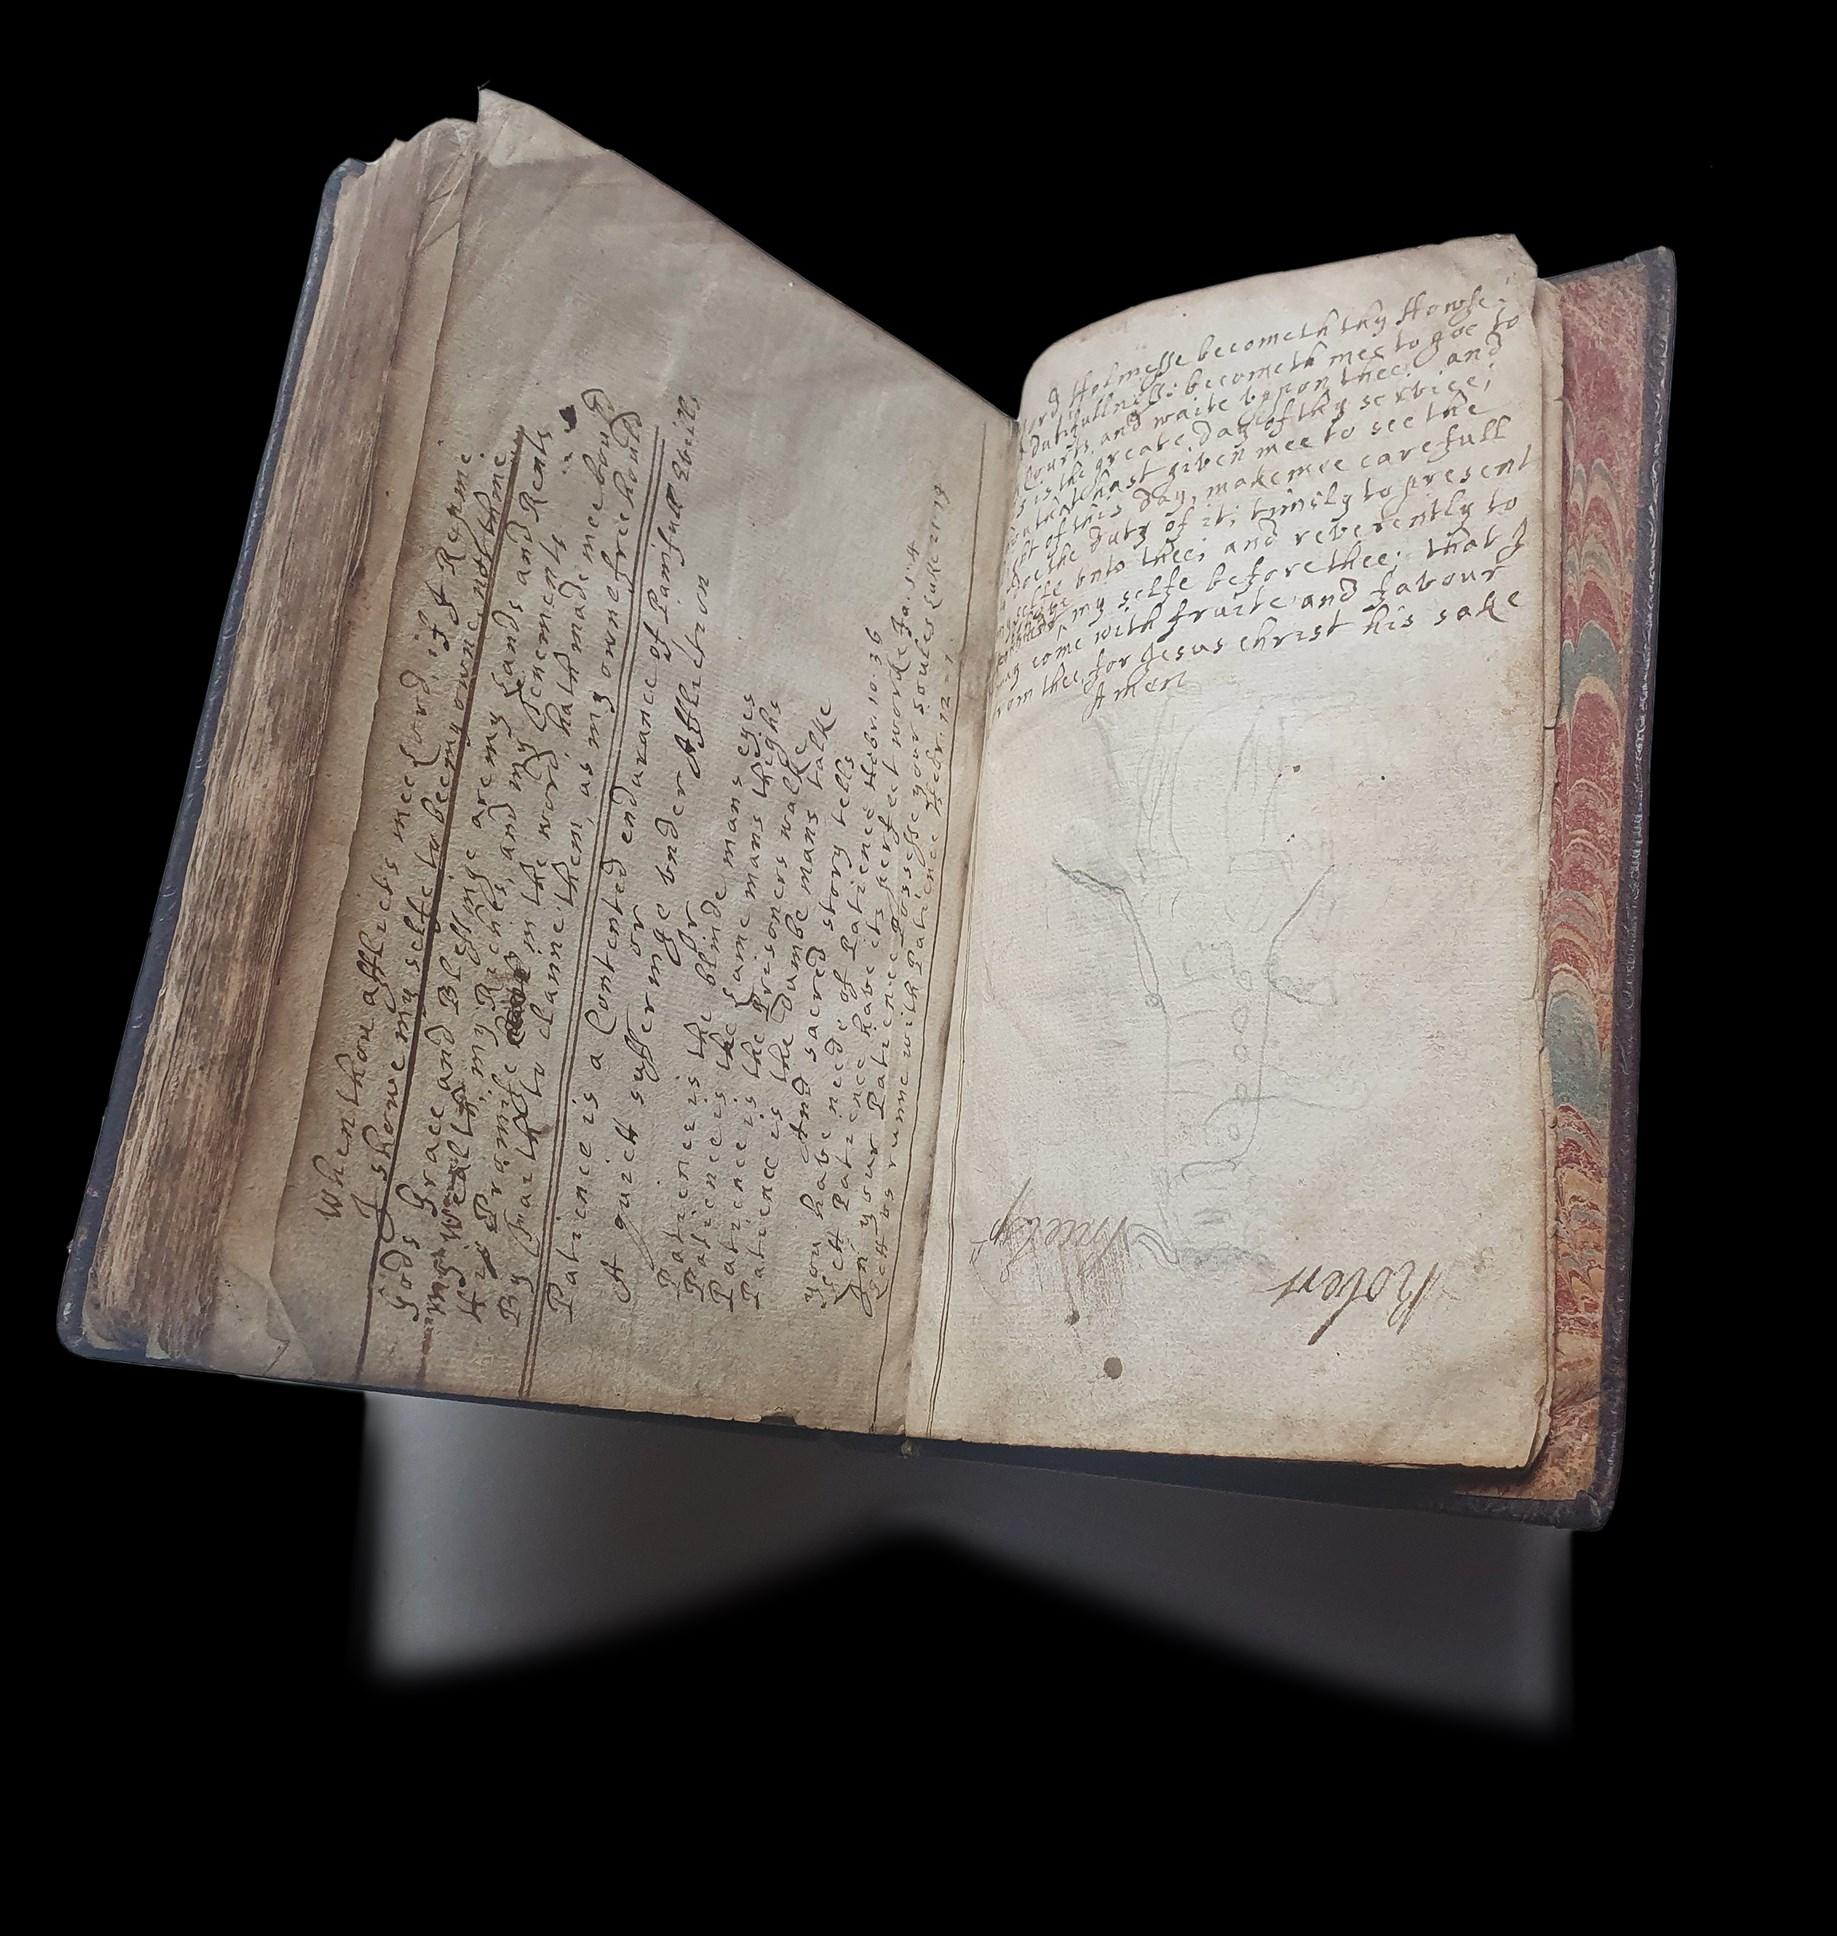 When thou afflicts mee Lord, if I Repine
I showe my selfe to bee my owne not thine
Gods Grace and Blessinge are my Lands and Rents
my Wealth, my Riches, and my Tenements
His Promise in the word, hath made mee bond
By Faith to claime them, as my owne freehould
Patience is a Contented endurance of Painfull Evill,
or
A quiet sufferinge under Affliction
Patience is the blinde mans eyes
Patience is the Lame mans thighs
Patience is the Prisoners walke
Patience is the Dumbe mans talke
And sacred story tells
you have need of Patience Hebr. 10. 36
Let Patience have its perfect worke Ja. 1. 4
In your Patience possesse your soules Luke 21 19
Let us runne with Patience Hebr. 12 - 1.
Holinesse becometh thy Howse:
Dutifullnesse becometh mee to goe to
Courts and waite uppon thee: and
is the greate Day of thy service;
that hast given mee to see the
of this Day, make mee carefull
the Duty of it; timely to present
selfe unto thee; and reverently to
my selfe before thee; that I
come with fruite and favour
from thee, for Jesus Christ his sake
Amen
Robert